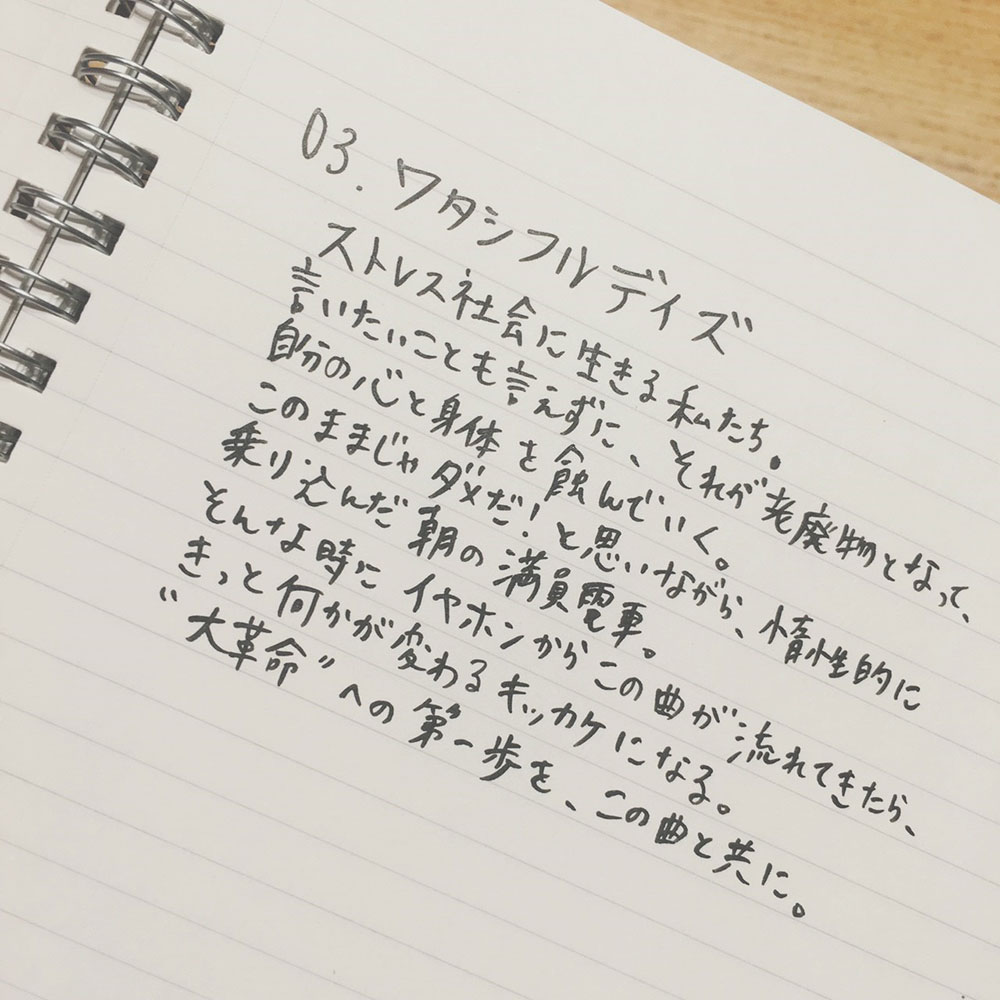 03. ワタシフルデイズ
ストレス社会に生きる私たち。
言いたいことも言えずに、それが老廃物となって、
自分の心と身体を蝕んでいく。
このままじゃダメだ！と思いながら、惰性的に
乗り込んだ朝の満員電車。
そんな時にイヤホンからこの曲が流れてきたら、
きっと何かが変わるキッカケになる。
“大革命”への第一歩を、この曲と共に。